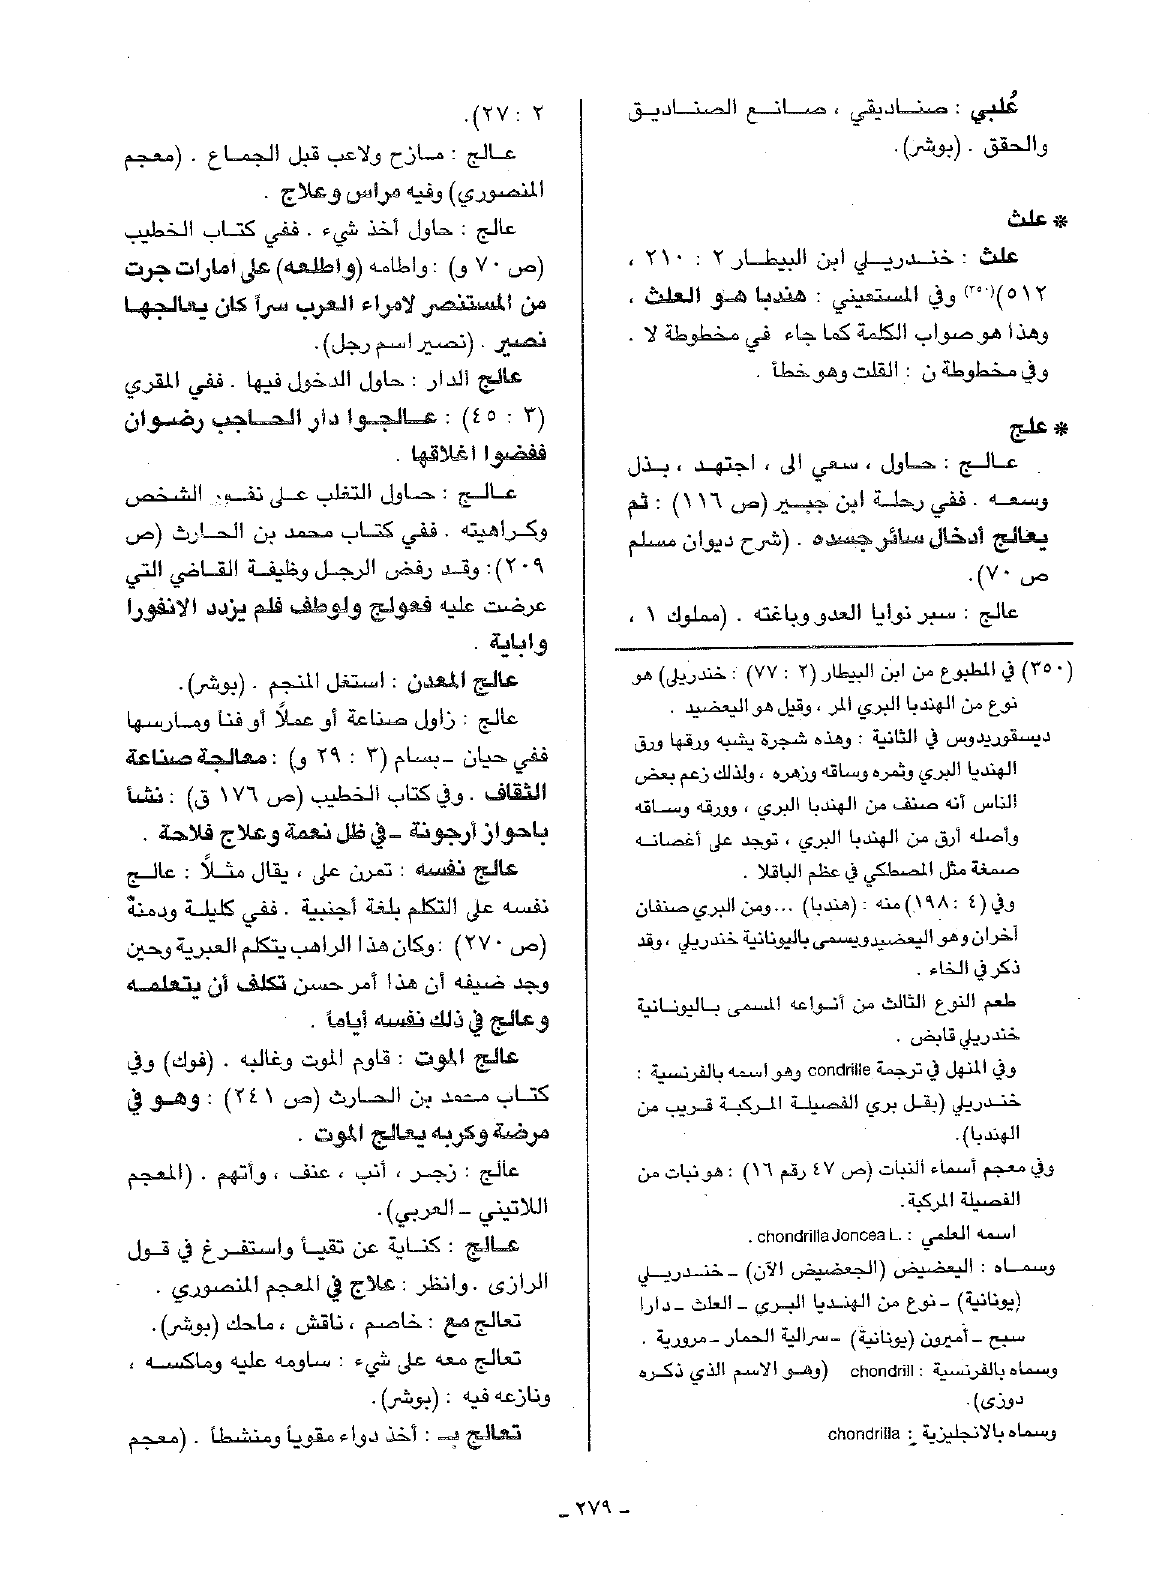 عُلبي : صناديقي ، صانع الصناديق
والحقق . (بوشر).
* علث
علث : خندريلي ابن البيطار ٢ : ٢١٠ ،
٥١٢)(٣٥٠) وفي المستعيني : هندبا هو العلث ،
وهذا هو صواب الكلمة كما جاء في مخطوطة لا .
وفي مخطوطة ن : القلت وهو خطأ .
* علج
عالج : حاول ، سعي الى ، اجتهد ، بذل
وسعه . ففي رحلة ابن جبير (ص ١١٦) : ثم
يعالج أدخال سائر جسده . (شرح ديوان مسلم
ص ٧٠).
عالج : سبر نوايا العدو وباغته . (مملوك ١ ،
(٣٥٠) في المطبوع من ابن البيطار (٢ : ٧٧) : خندريلي) هو
نوع من الهندبا البري المر ، وقيل هو اليعضيد .
ديسقوريدوس في الثانية : وهذه شجرة يشبه ورقها ورق
الهندبا البري وثمره وساقه وزهره ، ولذلك زعم بعض
الناس أنه صنف من الهندبا البري ، وورقه وساقه
وأصله أرق من الهندبا البري ، توجد على أغصانه
صمغة مثل المصطكي في عظم الباقلا .
وفي (٤ : ١٩٨) منه : (هندبا) ...ومن البري صنفان
أخران وهو اليعضيد ويسمى باليونانية خندريلي ، وقد
ذكر في الخاء .
طعم النوع الثالث من أنواعه المسمى باليونانية
خندريلي قابض .
وفي المنهل في ترجمة condrille وهو اسمه بالفرنسية :
خندريلي (بقل بري الفصيلة المركبة قريب من
الهندبا).
وفي معجم أسماء النبات (ص ٤٧ رقم ١٦) : هو نبات من
الفصيلة المركبة.
اسمه العلمي : chondrilla Joncea L. .
وسماه : اليعضيض (الجعضيض الآن) - خندريلي
(يونانية) - نوع من الهندبا البري - العلث - دارا
سبج - أميرون (يونانية) - سرالية الحمار - مرورية .
وسماه بالفرنسية : chondrill (وهو الاسم الذي ذكره
دوزي).
وسماه بالانجليزية : chondrilla
٢ : ٢٧).
عالج : مازح ولاعب قبل الجماع . (معجم
المنصوري) وفيه مراس وعلاج .
عالج : حاول أخذ شيء . ففي كتاب الخطيب
(ص ٧٠ و) : واطامه (واطلعه) على امارات جرت
من المستنصر لامراء العرب سراً كان يعالجها
نصير . (نصير اسم رجل).
عالج الدار : حاول الدخول فيها . ففي المقري
(٣ : ٤٥) : عالجوا دار الحاجب رضوان
ففضوا اغلاقها .
عالج : حاول التغلب على نفور الشخص
وكراهيته . ففي كتاب محمد بن الحارث (ص
٢٠٩): وقد رفض الرجل وظيفة القاضي التي
عرضت عليه فعولج ولوطف فلم يزدد الانفورا
واباية .
عالج المعدن : استغل المنجم . (بوشر).
عالج : زاول صناعة أو عملاً أو فناً ومارسها
ففي حيان - بسام (٣ : ٢٩ و) : معالجة صناعة
الثقاف . وفي كتاب الخطيب (ص ١٧٦ ق) : نشأ
باحواز أرجونة - في ظل نعمة وعلاج فلاحة .
عالج نفسه : تمرن على ، يقال مثلاً : عالج
نفسه على التكلم بلغة أجنبية . ففي كليلة ودمنة
(ص ٢٧٠) : وكان هذا الراهب يتكلم العبرية وحين
وجد ضيفه أن هذا أمر حسن تكلف أن يتعلمه
وعالج في ذلك نفسه أياماً .
عالج الموت : قاوم الموت وغالبه . (فوك) وفي
كتاب محمد بن الحارث (ص ٢٤١) : وهو في
مرضة وكربه يعالج الموت .
عالج : زجر ، أنب ، عنف ، وأتهم . (المعجم
اللاتيني - العربي).
عالج : كناية عن تقيأ واستفرغ في قول
الرازى . وانظر : علاج في المعجم المنصوري .
تعالج مع : خاصم ، ناقش ، ماحك (بوشر).
تعالج معه على شيء : ساومه عليه وماكسه ،
ونازعه فيه : (بوشر).
تعالج بـ : أخذ دواء مقوياً ومنشطاً . (معجم
- ٢٧٩ -